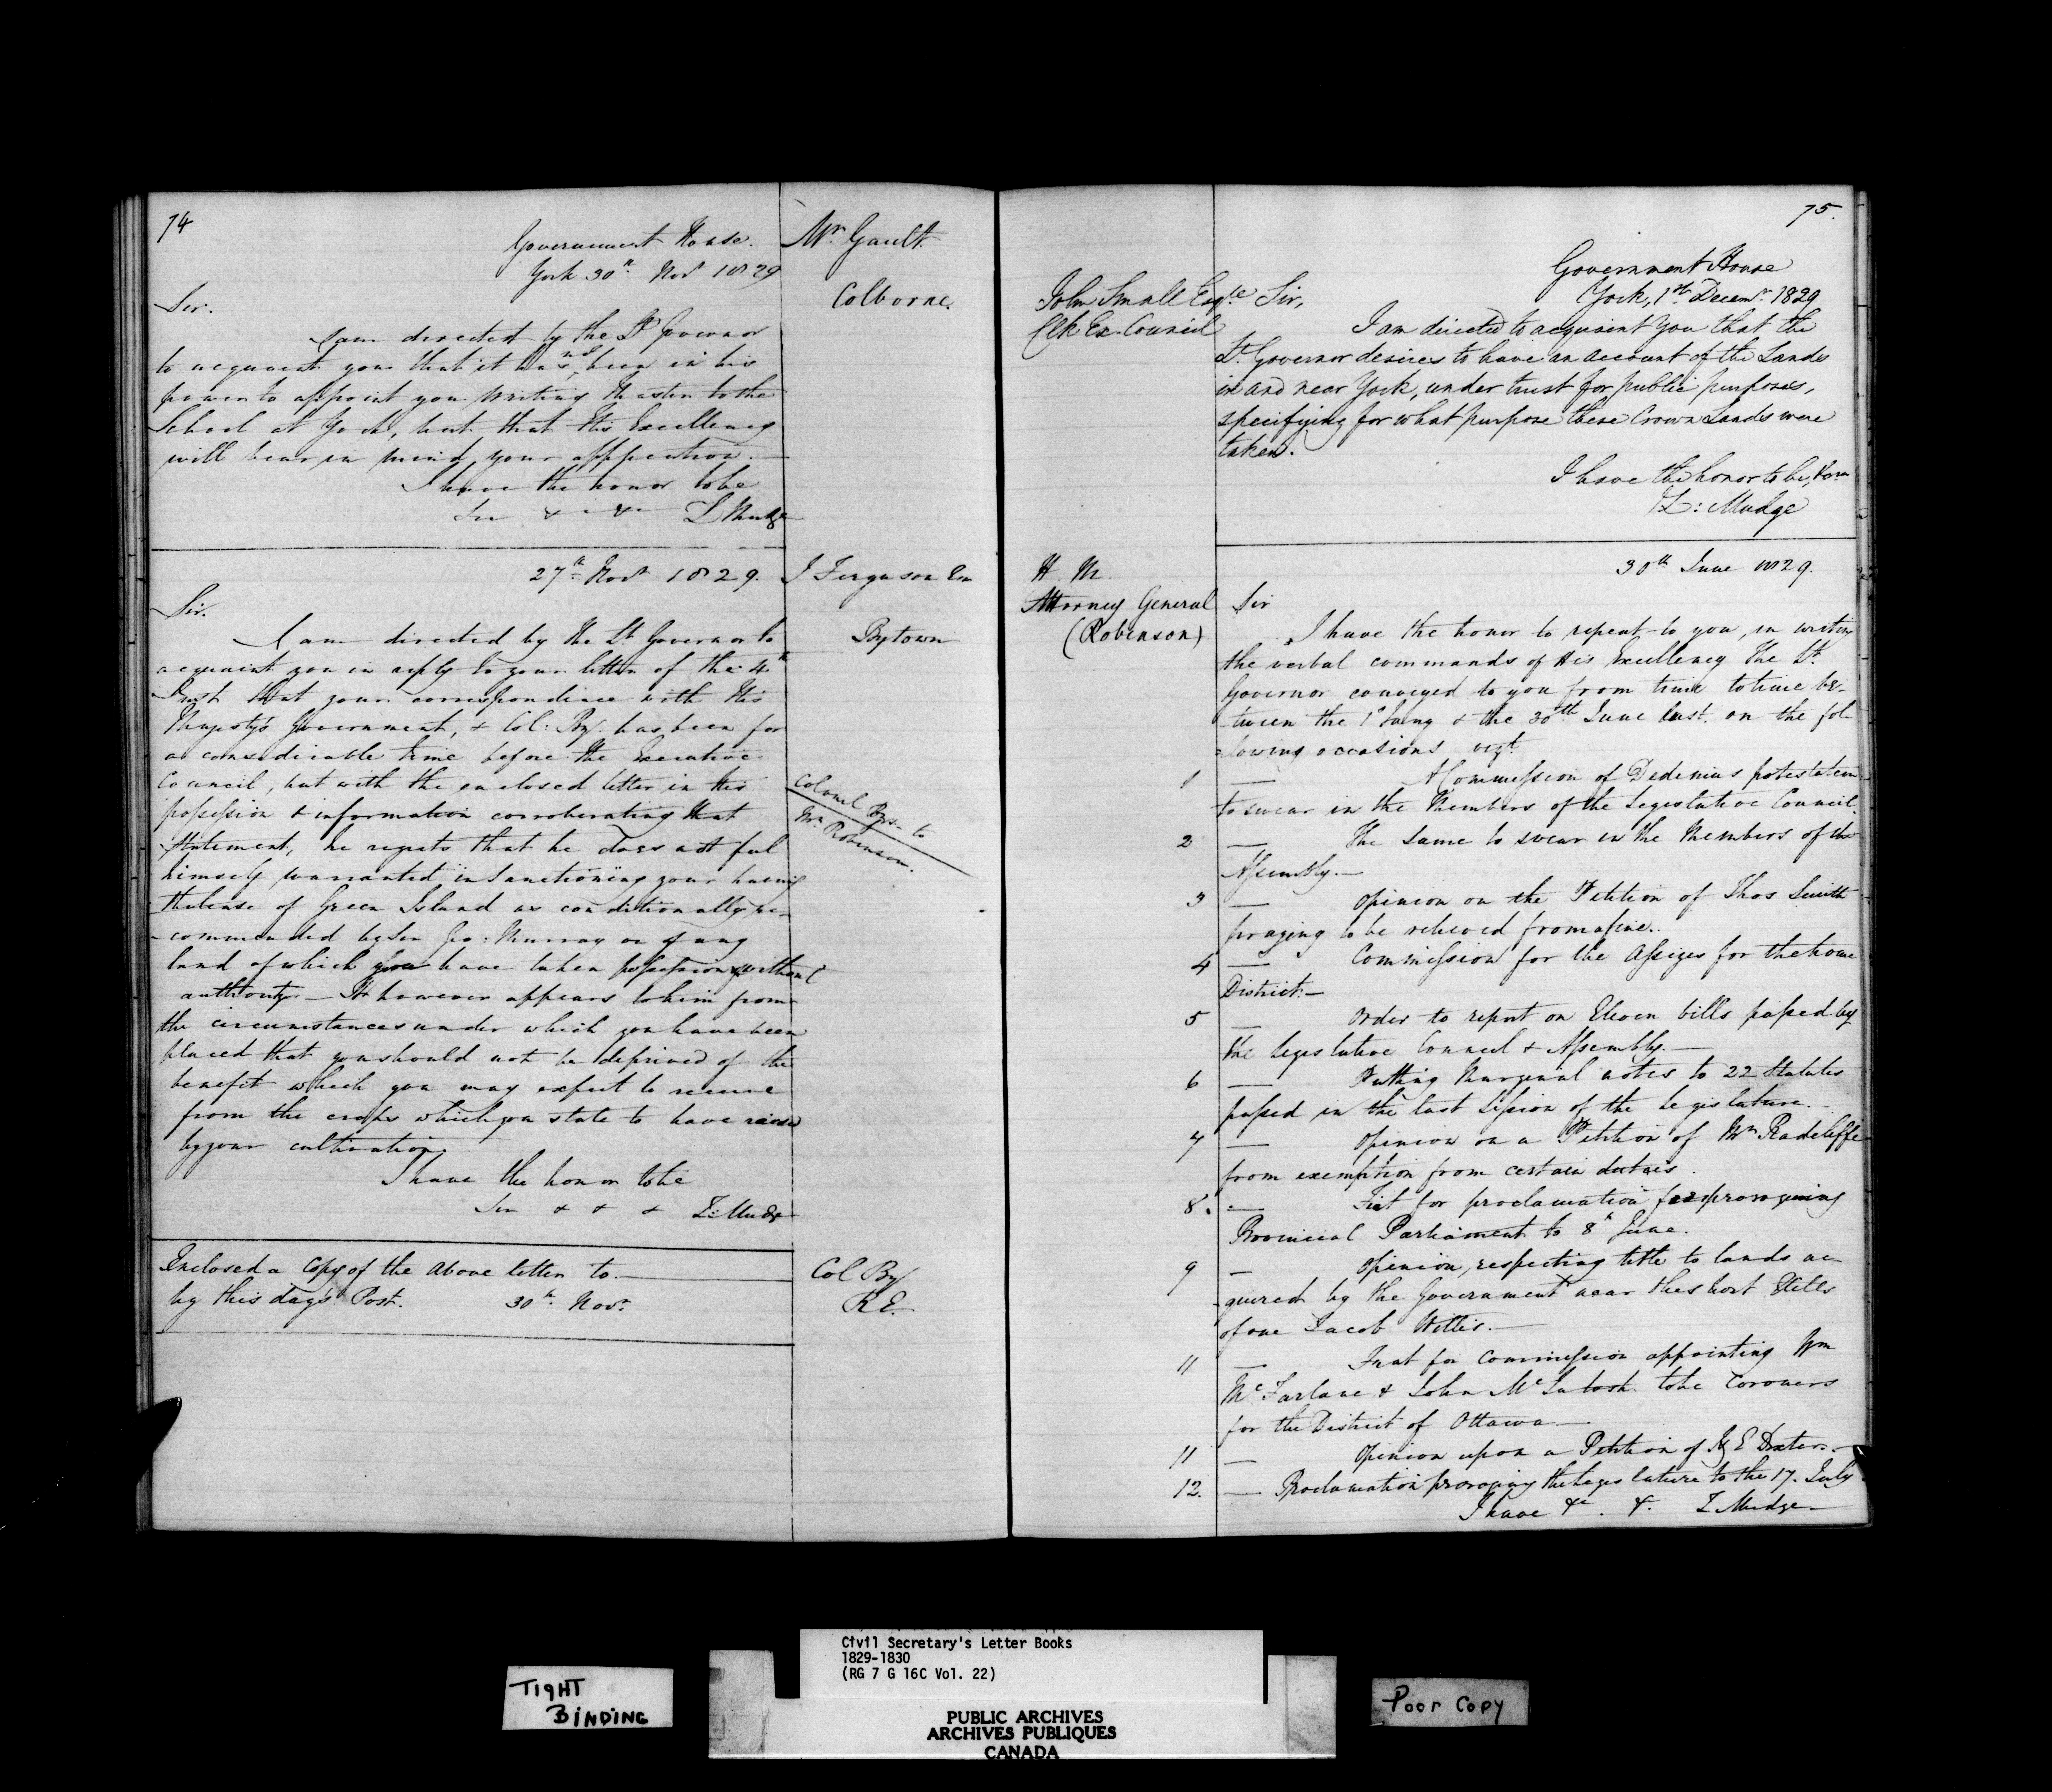 74
Government House.
York 30th Novr 1829
Mr Gault
Colborne.
Sir.
I am directed by the Lt Governor
to acquaint you that it has not been in his
power to appoint you Writing Master to the
School at York, but that His Excellency
will bear in mind your appication.
I have the honor to be
Sir & - & - Z Mudge
27th Novr 1829.
J Ferguson Esq
Bytown
Sir.
I am directed by the Lt Governor to
acquaint you in reply to your letter of the 4th
Inst that your correspondence with His
Majesty's Government, & Col: By has been for
a considerable time before the Executive
Council, but with the enclosed letter in his
possession & information corroberating that
Statement, he regrets that he does not feel
himself warranted in Sanctioning your having
the lease of Green Island as conditionally re-
commended by Sir Geo: Murray or of any
land of which you have taken possession without
authority — It however appears to him from
the circumstances under which you have been
placed that you should not be deprived of the
benefit which you may expect to receive
from the crops which you state to have raised
by your cultivation.
I have the honor to be
Sir & & & Z: Mudge
Colonel By's to
Mr Robinson.
Enclosed a Copy of the above letter to
by this day's Post. 30th Novr
Col By
R E.
75.
Government House
York, 1st Decemr 1829
John Small Esqre
Clk Ex. Council
Sir,
I am directed to acquaint you that the
Lt Governor desires to have an account of the Lands
in and near York, under trust for public purposes,
specifying for what purpose these Crown Lands were
taken.
I have the honor to be,
Z: Mudge
30th June 1829.
H. M.
Attorney General
(Robinson)
Sir
I have the honor to repeat to you, in writing
the verbal commands of His Excellency the Lt
Governor conveyed to you from time to time be-
tween the 1st Jany & the 30th June last. on the fol-
lowing occasions vizt
1 — A Commission of Dedimus potestatem
to swear in the Members of the Legislative Council.
2 — The same to swear in the Members of the
Assembly. —
3 — Opinion on the Petition of Thos Smith
praying to be relieved from a fine..
4 — Commission for the Assizes for the home
District —
5 — Order to report on Eleven bills passed by
the Legislative Council & Assembly. —
6 — Putting Marginal notes to 22 Statutes
passed in the last Session of the Legislature.
7 — Opinion on a Petition of Mr Radcliffe
from exemption from certain duties.
8. — Fiat for proclamation for proroguing
Provincial Parliament to 8th June.
9 — Opinion, respecting title to lands ac-
quired by the Government near the short Hills
of one Jacob Wittis. —
11 — Fiat for Commission appointing Wm
McFarlane & John McIntosh to be Coroners
for the District of Ottawa —
11 — Opinion upon a Petition of E Dexter. —
12. — Proclamation proroging the Legislature to the 17. July
I have &c. &. Z Mudge
TIGHT
BINDING
Civil Secretary's Letter Books
1829-1830
(RG 7 G 16C Vol. 22)
PUBLIC ARCHIVES
ARCHIVES PUBLIQUES
CANADA
Poor Copy